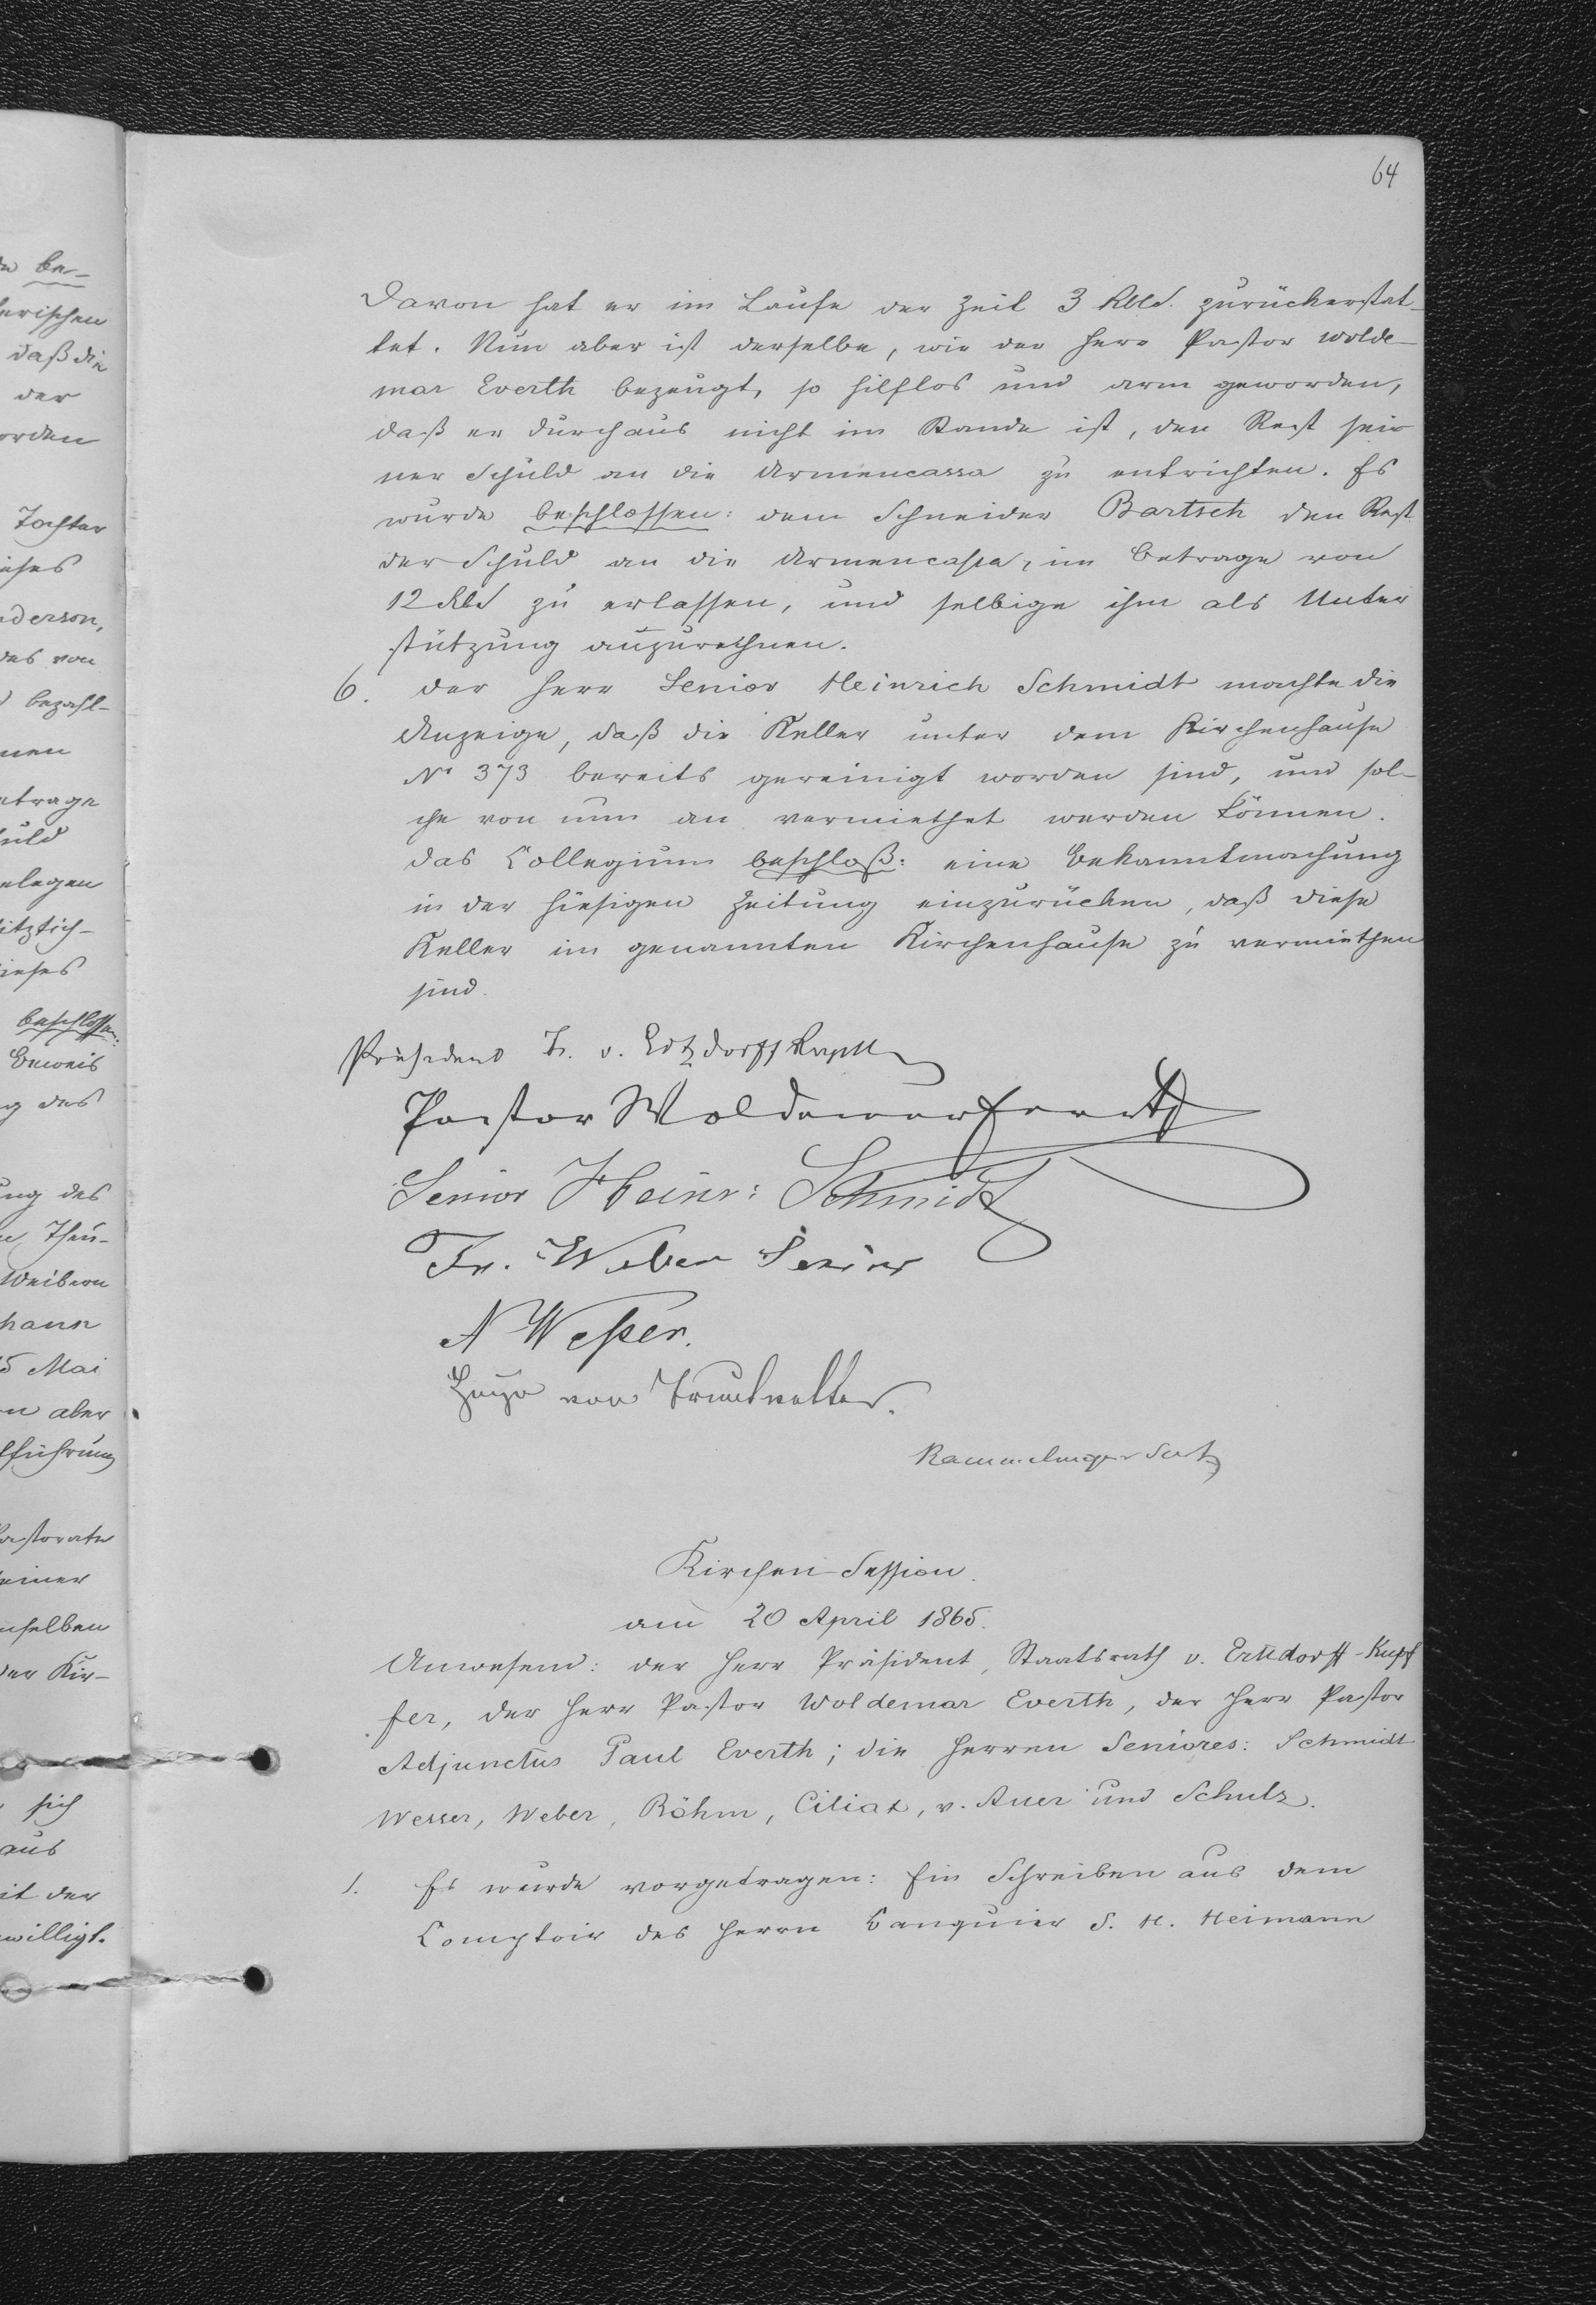 64
Davon hat er im Laufe der Zeit 3 Rbls. zurückerstat-
tet. Nun aber ist derselbe, wie der Herr Pastor Wolde-
mar Everth bezeugt, so hilflos und arm geworden,
daß er durchaus nicht im Stande ist, den Rest sei-
ner Schuld an die Armencassa zu entrichten. Es
wurde beschlossen: dem Schneider Bartsch den Rest
der Schuld an die Armencassa, im Betrage von
12 Rbl zu erlassen, und selbige ihm als Unter
stützung anzurechnen.
6. Der Herr Senior Heinrich Schmidt machte die
Anzeige, daß die Keller unter dem Kirchenhause
No 373 bereits gereinigt worden sind, und sol-
che von nun an vermiethet werden können.
Das Collegium beschloß: eine Bekanntmachung
in der hiesigen Zeitung einzurücken, daß diese
Keller im genannten Kirchenhause zu vermiethen
sind.
Präsident v. Ertzdorff Kupffer
Pastor Woldemar Everth
Senior Heinr: Schmidt
Fr. Weber Senior
A Wesser.
Hugo von Trautvetter.
Kirchen-Session.
am 20 April 1865.
Anwesend: der Herr Präsident, Staatsrath v. Ertzdorff-Kupf
fer, der Herr Pastor Woldemar Everth, der Herr Pastor
Adjunctus Paul Everth; die Herren Seniores: Schmidt
Wesser, Weber, Böhm, Ciliax, v. Auer und Schulz.
1. Es wurde vorgetragen: Ein Schreiben aus dem
Comptoir des Herrn Banquier S. H. Heimann